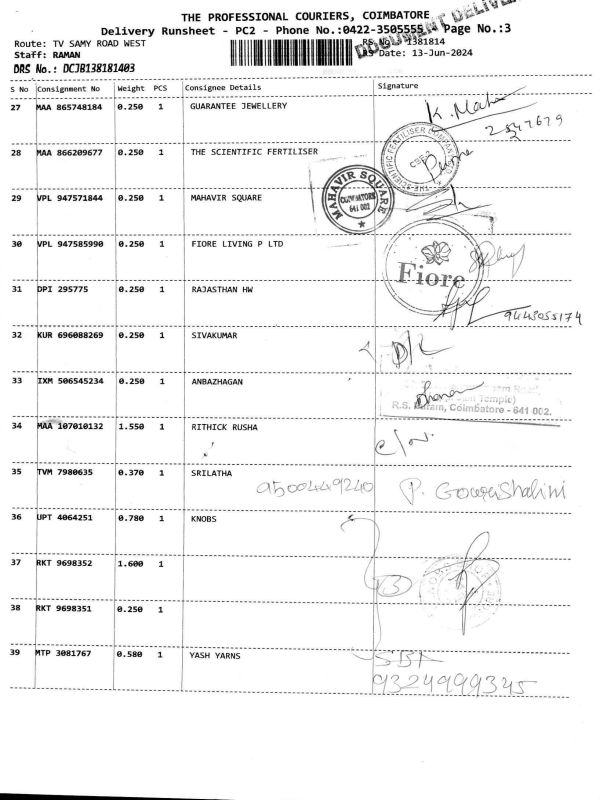 THE PROFESSIONAL COURIERS, COIMBATORE
Delivery Runsheet - PC2 - Phone No.:0422-3505555 Page No.:3
DOCUMENT DELIVER
Route: TV SAMY ROAD WEST RS No.: 1381814
Staff: RAMAN RS Date: 13-Jun-2024
DRS No.: DCJB138181403
S No Consignment No Weight PCS Consignee Details Signature
27 MAA 865748184 0.250 1 GUARANTEE JEWELLERY
28 MAA 866209677 0.250 1 THE SCIENTIFIC FERTILISER
THE SCIENTIFIC FERTILISER COMPANY
CBE-2
29 VPL 947571844 0.250 1 MAHAVIR SQUARE
MAHAVIR SQUARE
COIMBATORE
641 002
30 VPL 947585990 0.250 1 FIORE LIVING P LTD
Fiore
31 DPI 295775 0.250 1 RAJASTHAN HW
9443055174
32 KUR 696088269 0.250 1 SIVAKUMAR
D/L
33 IXM 506545234 0.250 1 ANBAZHAGAN
Temple)
R.S. Puram, Coimbatore - 641 002.
34 MAA 107010132 1.550 1 RITHICK RUSHA
35 TVM 7980635 0.370 1 SRILATHA
9500449240 P. GowriShalini
36 UPT 4064251 0.780 1 KNOBS
37 RKT 9698352 1.600 1
3
38 RKT 9698351 0.250 1
39 MTP 3081767 0.580 1 YASH YARNS
9324999345